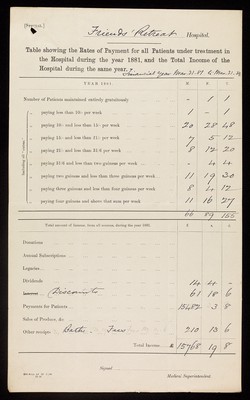 Friends' Retreat Hospital.
Table showing the Rates of Payment for all Patients under treatment in
the Hospital during the year 1881, and the Total Income of the
Hospital during the same year.
YEAR 1881 M F T
Number of Patients maintained entirely gratuitously - 1 1
" paying less than 10/- per week 1 - 1
" paying 10/- and less than 15/- per week 20 28 48
" paying 15/- and less than 21/- per week 7 5 12
" paying 21/- and less than 31/6 per week 8 12 20
" paying 31/6 and less than two guineas per week - 4 4
" paying two guineas and less than three guineas per week 11 19 30
" paying three guineas and less than four guineas per week 8 4 12
" paying four guineas and above that sum per week 11 16 27
66 89 155
Total amount of Income, from all sources, during the year 1881. £ s. d.
Donations
Annual Subscriptions
Legacies
Dividends 14 4 -
Interest Discounts 61 18 6
Payments for Patients 15482 3 8
Sales of Produce, &c.
Other receipts 210 13 6
Total Income £ 15768 19 8
Signed
Medical Superintendent.